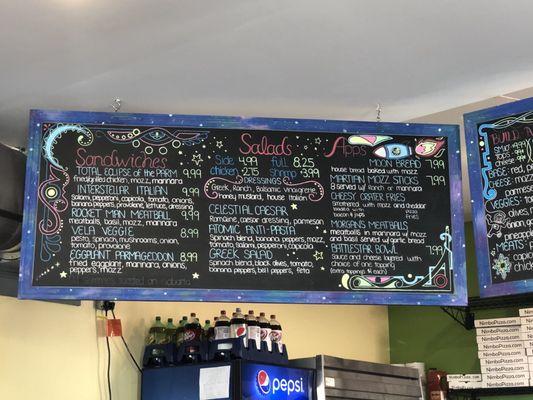 Sandwiches
TOTAL ECLIPSE OF THE PARM 9.99
fried/grilled chicken, mozz, marinara
INTERSTELLAR ITALIAN 9.99
salami, pepperoni, capicola, tomato, onions,
banana peppers, provolone, lettuce, dressing
ROCKET MAN MEATBALL 9.99
meatballs, basil, mozz, marinara
VELA VEGGIE 8.99
pesto, spinach, mushrooms, onion,
tomato, provolone
EGGPLANT PARMAGEDDON 8.99
fried eggplant, marinara, onions,
peppers, mozz
Salads
Side 4.99 full 8.25
chicken 2.75 shrimp 3.99
DRESSINGS
Greek, Ranch, Balsamic vinaigrette,
honey mustard, house Italian
CELESTIAL CAESAR
Romaine, caesar dressing, parmesan
ATOMIC ANTI-PASTA
Spinach blend, banana peppers, mozz,
tomato, salami, pepperoni, capicola
GREEK SALAD
Spinach blend, black olives, tomato,
banana peppers, bell peppers, feta
Apps
MOON BREAD 7.99
house bread baked with mozz
MARTIAN MOZZ STICKS
8 served w/ Ranch or marinara 7.99
CHEESY CRATER FRIES
Smothered with mozz and cheddar
bacon & jaχs
MORGANS MEATBALLS
meatballs in marinara w/ mozz
and basil served w/ garlic bread
BATTLESTAR BOWL 7.99
Sauce and cheese layered with
choice of one topping
BUILD
pepsi
NimboPizza.com
NimboPizza.com
NimboPizza.com